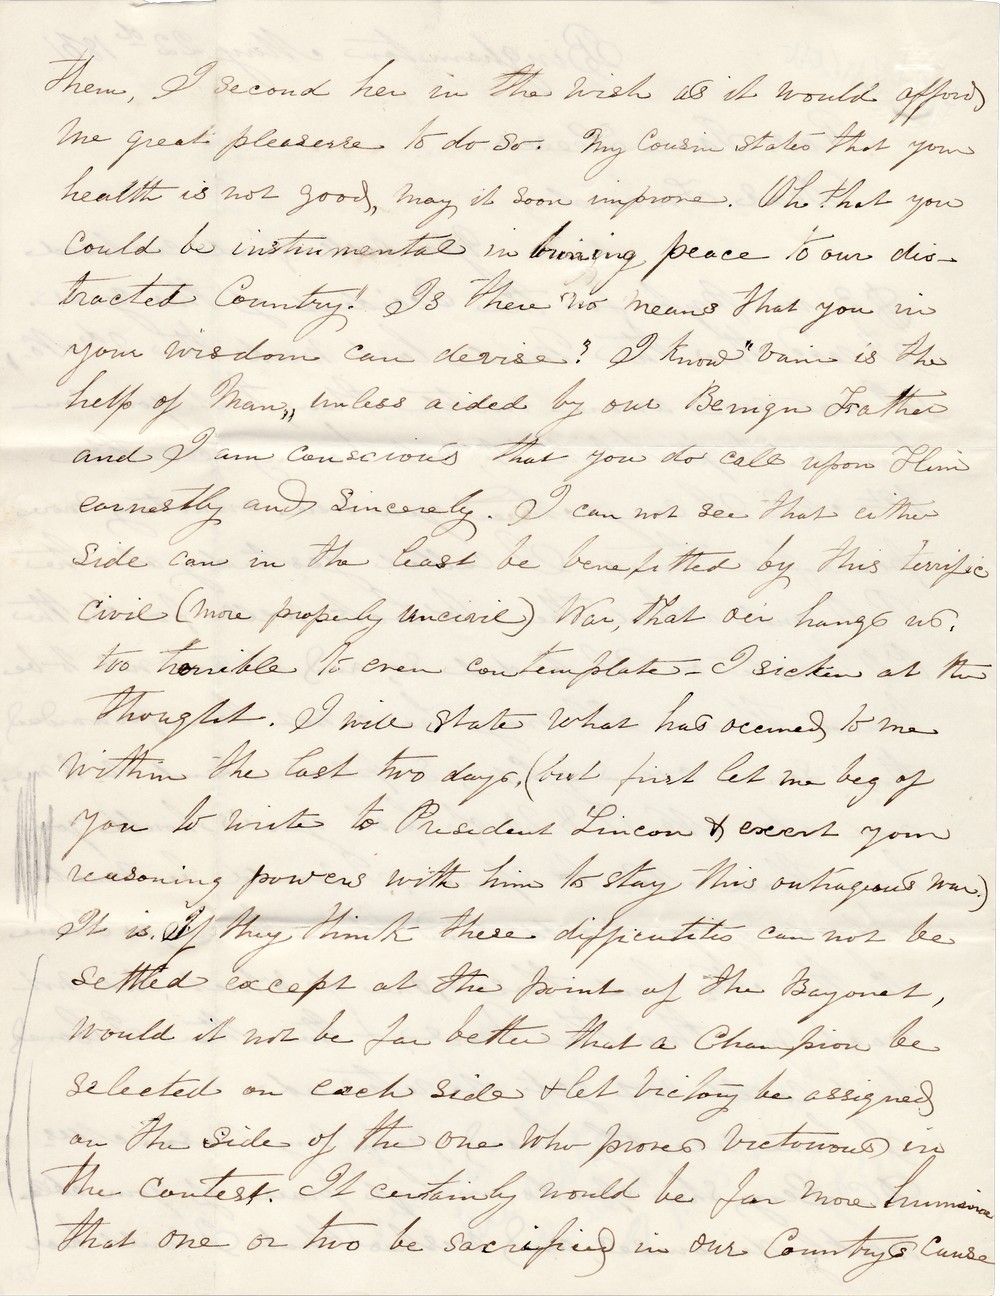 them, I second her in the wish as it would afford
me great pleasesse to do so. My Cousin states that your
health is not good, may it soon improve. Oh that you
could be instrumental in bring peace to our dis-
tracted Country! Is there no means that you in
your wisdom can devise? I know "vain is the
help of Man,, unless aided by our Benign Father
and I am conscious that you do call upon Him
earnestly and sincerely. I can not see that either
side can in the least be benefitted by this terrific
civil (more properly uncivil) War, that oer hangs us.
too horrible to even contemplate - I sicken at the
thought. I will state what has occured to me
within the last two days, (but first let me beg of
you to write to President Lincon & exert your
reasoning powers with him to stay this outrageous war.)
It is. If they think these difficultites can not be
settled except at the point of the Bayonet,
would it not be far better that a Champion be
selected on each side & let victory be assigned
on the side of the one who proves victorious in
the contest. It certainly would be far more humaine
that one or two be sacrificed in our Countrys Cause